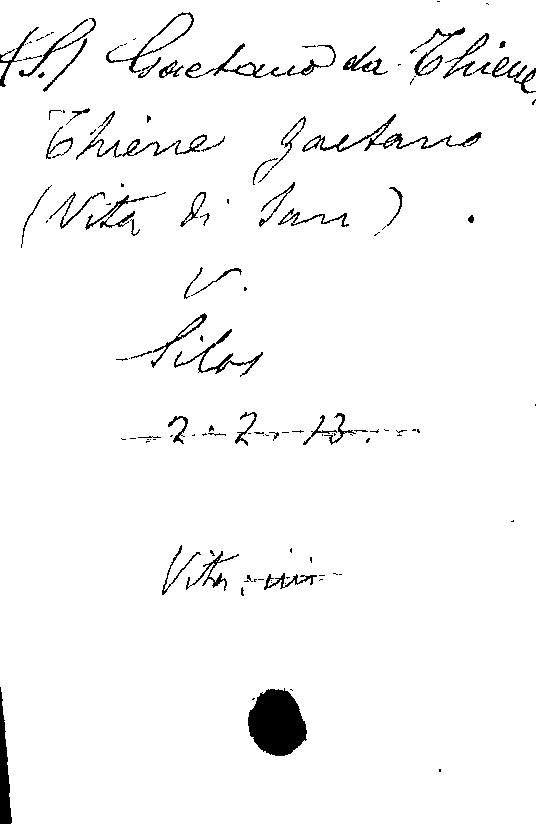 (S.) Gaetano da Thiene,
Thiene Gaetano
(Vita di San) .
V.
Silos
2. 2. 13.
Vita.